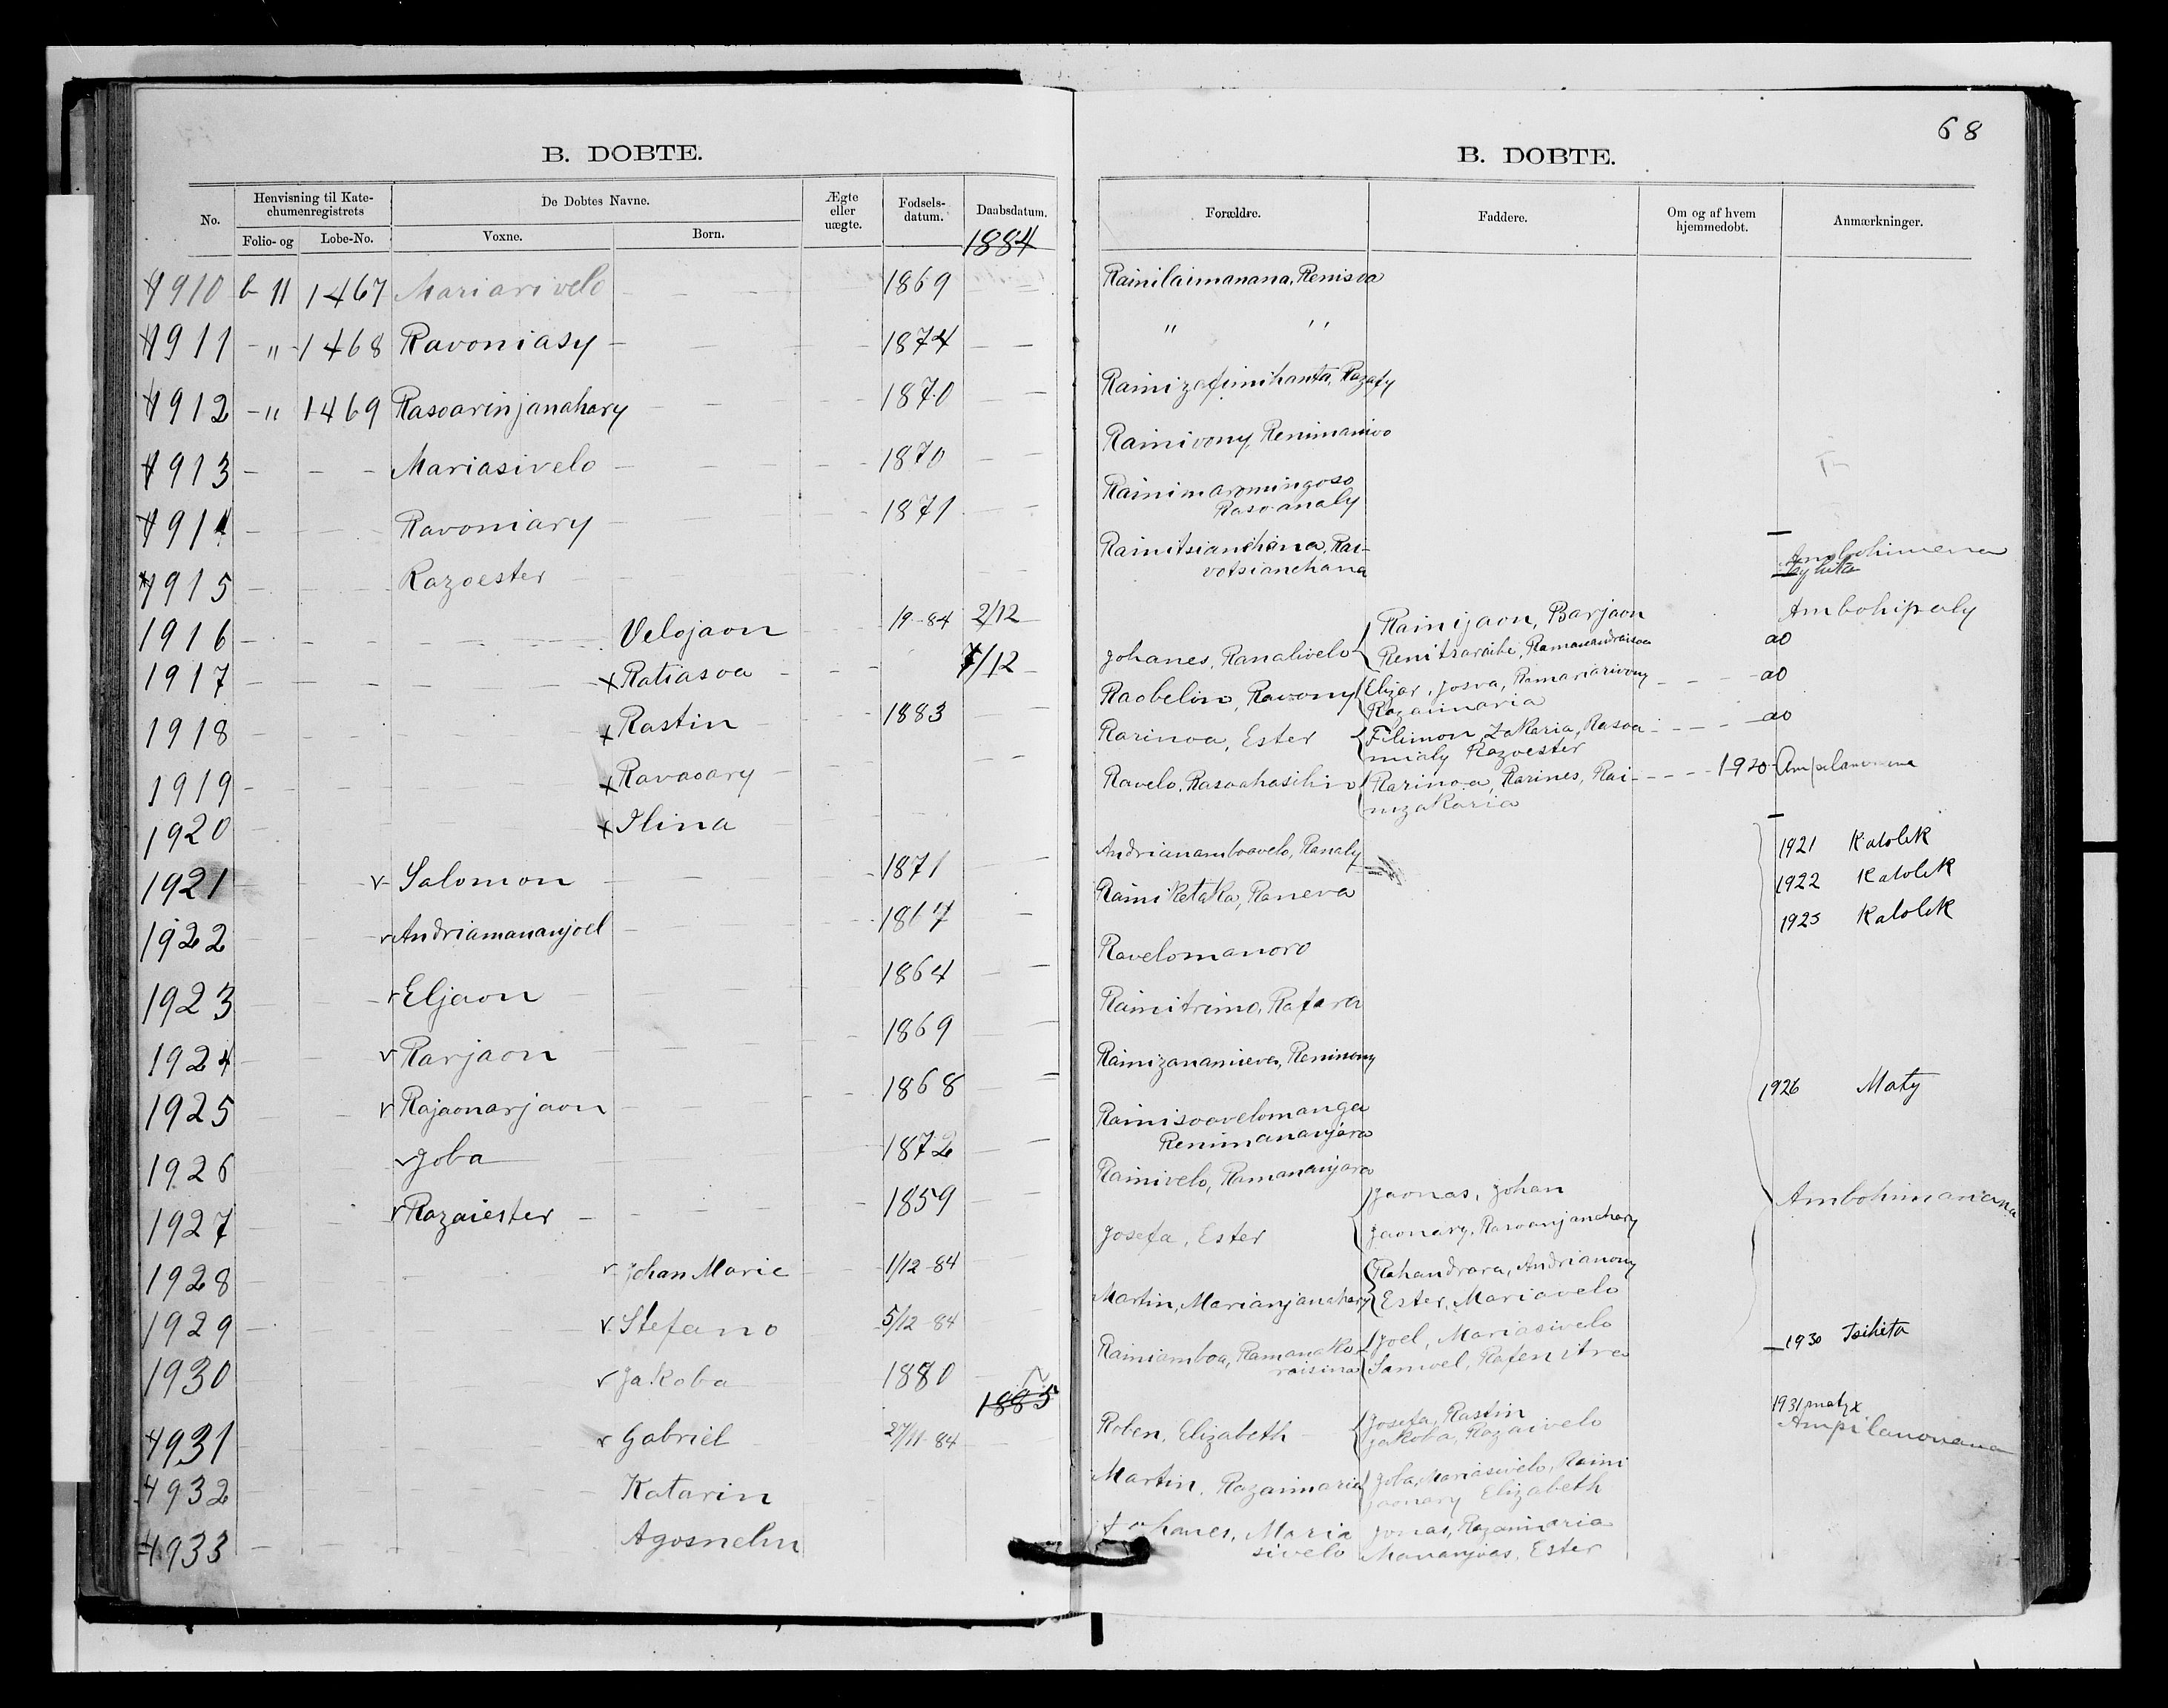 68
B. DOBTE.
B. DOBTE.
No.
Henvisning til Kate-
chumenregistrets
Folio- og
Lobe-No.
De Dobtes Navne.
Voxne.
Born.
Ægte
eller
uægte.
Fodsels-
datum.
Daabsdatum.
1884
Forældre.
Faddere.
Om og af hvem
hjemmedobt.
Anmærkninger.
1910 b 11 1467 Mariarivelo - - - 1869
1911 - " - 1468 Ravoniasy - - - 1874 - -
1912 - " 1469 Rasoarinjanahary - - - 1870 - -
1913 - - - Mariasivelo - - - - 1870 - -
1914 - - - Ravoniary - - - 1871 - -
1915 - - - Razoester - - -
1916 - - - Velojaon 19-84 2/12
1917 - - - x Ratiasoa - - - 7/12
1918 - - - x Rastin - - 1883 - -
1919 - - - x Ravaoary - - -
1920 - - - x Ilina
1921 - - v Salomon - - - 1871 - -
1922 - - v Andriamananjoel - - - 1867 -
1923 - - v Eljaon - - - 1864 - -
1924 - - v Rarjaon - - - 1869 - -
1925 - - v Rajaonarjaon - - - 1868 - -
1926 v Joba 1872 - -
1927 - - v Razaiester - - - - 1859 - -
1928 - - v Johan Marie - - 1/12-84
1929 - - v Stefano - - 5/12-84
1930 - - v Jakoba - 1880
1885
1931 - - v Gabriel - 27/11-84
1932 - - - Katarin
1933 - - - Agosnelin
Rainilaimanana, Renisoa
" "
Rainizafimihanta, Razafy
Rainivony, Renimanivo
Rainimaromingoso
Rasoanaly
Rainitsianehana, Rai-
votsianehana
Ambohimena
Ambohipoly
Johanes, Ranalivelo { Rainijaon, Barjaon
Renitsaraibe, ao
Raobelin, Ravony { Elizar, Josva, Ramariarivony - - - ao
Razaimaria
Rarinoa, Ester { Filimon, Zakaria, Rasoa - - - ao
mialy Razoester
Ravelo, Rasoahasihin { Rarinoa, Rarines, Rai- - - - 1920
nizakaria
Andrianamboavelo, Ranaly
1921 Katolik
Rainiketaka, Raneva
1922 Katolik
1925 Katolik
Ravelomanoro
Rainitrimo, Rafara
Rainizananieva, Reninony
1926 Maty
Rainisoavelomanga
Renimananjara
Rainivelo, Ramananjara
Ambohimariana
Josefa, Ester { Jaonas, Johan
Jaonary, Rasoanjanahary
Martin, Marianjanahary { Rahandrara, Andrianony
Ester, Mariavelo
Rainiamboa, Ramanako-
raisina { Joel, Mariasivelo
Samoel, Rafenitra
1930 Tsihita
1931 maty x
Roben, Elizabeth - { Josefa, Rastin
Jakoba, Razaivelo
Ampilanonana
Martin, Razaimaria { Joba, Mariasivelo, Raini
jaonary Elizabeth
Johanes, Maria
sivelo
Jonas, Razaimaria
Mananjoas, Ester